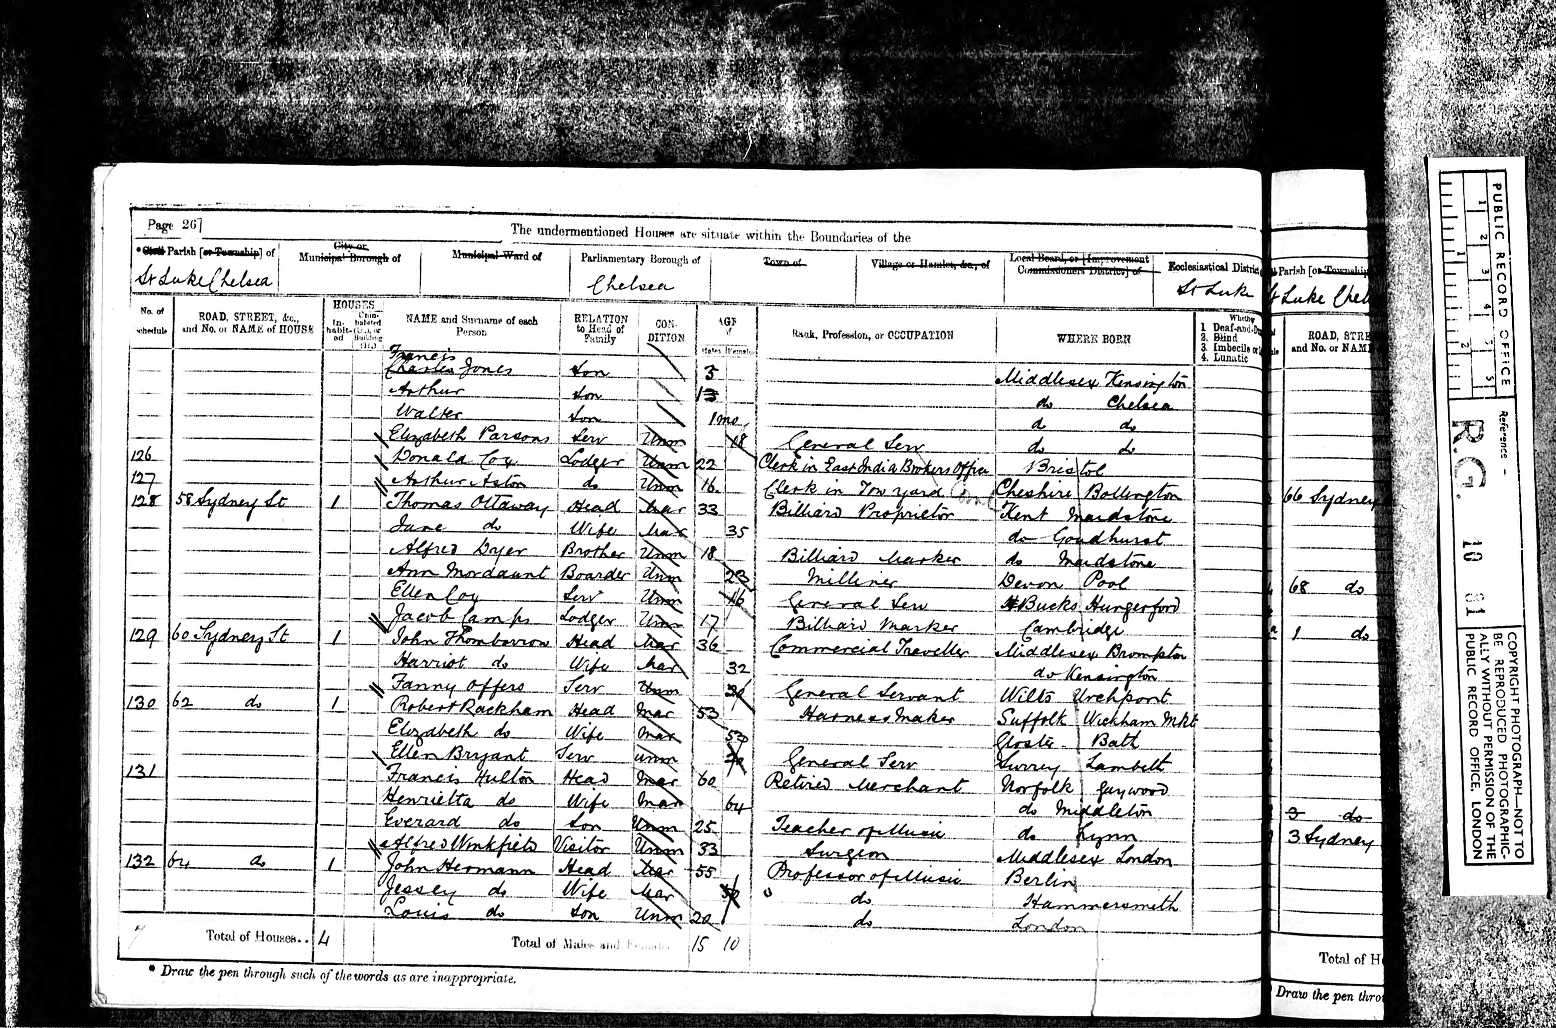 Page 26
The undermentioned Houses are situate within the Boundaries of the
* Civil Parish [or Township] of
City or Municipal Borough of
Municipal Ward of
Parliamentary Borough of
Town of
Village or Hamlet, &c., of
Local Board, or [Improvement Commissioners District] of
Ecclesiastical District
St Luke Chelsea
Chelsea
St Luke
No. of Schedule
ROAD, STREET, &c., and No. or NAME of HOUSE
HOUSES
In-habit-ed
NAME and Surname of each Person
RELATION to Head of Family
CON-DITION
AGE of
Males Females
Rank, Profession, or OCCUPATION
WHERE BORN
Whether
1 Deaf-and-D
2. Blind
3. Imbecile or
4. Lunatic
Francis
Charles Jones Son 3 Middlesex Kensington
Arthur Son 13 do Chelsea
Walter Son 1 mo do do
Elizabeth Parsons Serv Unm 18 General Serv do do
126 Donald Cox Lodger Unm 22 Clerk in East India Brokers Office Bristol
127 Arthur Aston do Unm 16 Clerk in yard Cheshire Bollington
128 58 Sydney St 1 Thomas Ottaway Head Mar 33 Billiard Proprietor Kent Maidstone
Jane do Wife Mar 35 do Goudhurst
Alfred Dyer Brother Unm 18 Billiard Marker do Maidstone
Ann Mordaunt Boarder Unm 23 Milliner Devon Pool
Ellen Cox Serv Unm 16 General Serv Bucks Hungerford
Jacob Camps Lodger Unm 17 Billiard Marker Cambridge
129 60 Sydney St 1 John Thomborrow Head Mar 36 Commercial Traveller Middlesex Brompton
Harriot do Wife Mar 32 do Kensington
Fanny Offers Serv Unm General Servant Wilts Urchfont
130 62 do 1 Robert Rackham Head Mar 53 Harness Maker Suffolk Wickham Mkt
Elizabeth do Wife Mar Gloster Bath
Ellen Bryant Serv Unm General Serv Surrey Lambeth
131 Francis Hulton Head Mar 60 Retired Merchant Norfolk Gaywood
Henrietta do Wife Mar 64 do Middleton
Everard do Son Unm 25 Teacher of Music do Lynn
Alfred Winkfield Visitor Unm 33 Surgeon Middlesex London
132 64 do 1 John Hermann Head Mar 55 Professor of Music Berlin
Jessey do Wife Mar 50 do Hammersmith
Louis do Son Unm 20 do London
7 Total of Houses.. 4 Total of Males and Females 15 10
* Draw the pen through such of the words as are inappropriate.
Parish [or Township
St Luke Chel
ROAD, STRE
and No. or NAM
66 Sydney
68 do
1 do
3 do
3 Sydney
Total of H
Draw the pen throu
PUBLIC RECORD OFFICE
1 2 3 4 5
1 2
Reference -
R.G. 10 81
COPYRIGHT PHOTOGRAPH—NOT TO
BE REPRODUCED PHOTOGRAPHIC-
ALLY WITHOUT PERMISSION OF THE
PUBLIC RECORD OFFICE, LONDON